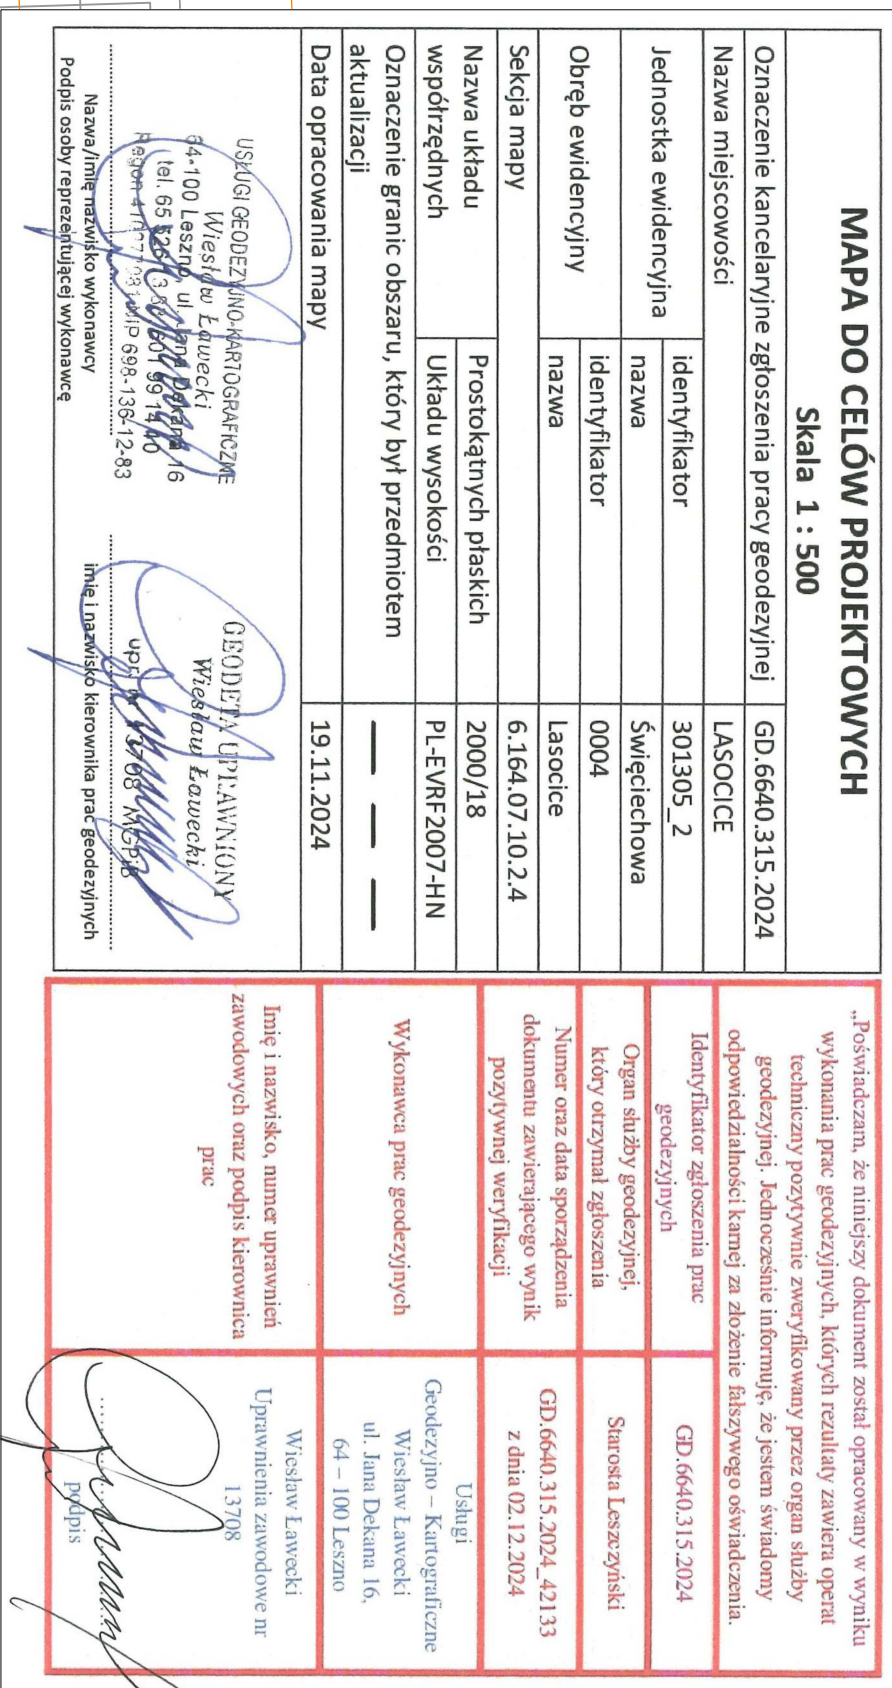 MAPA DO CELÓW PROJEKTOWYCH
Skala 1 : 500
Oznaczenie kancelaryjne zgłoszenia pracy geodezyjnej GD.6640.315.2024
Nazwa miejscowości LASOCICE
Jednostka ewidencyjna identyfikator 301305_2
nazwa Święciechowa
Obręb ewidencyjny identyfikator 0004
nazwa Lasocice
Sekcja mapy 6.164.07.10.2.4
Nazwa układu
współrzędnych
Prostokątnych płaskich 2000/18
Układu wysokości PL-EVRF2007-HN
Oznaczenie granic obszaru, który był przedmiotem
aktualizacji
Data opracowania mapy 19.11.2024
USŁUGI GEODEZYJNO-KARTOGRAFICZNE
Wiesław Ławecki
64-100 Leszno, ul. Jana Dekana 16
tel. 65 526 601 99 14 40
Regon NIP 698-136-12-83
Nazwa/imię nazwisko wykonawcy
Podpis osoby reprezentującej wykonawcę
GEODETA UPRAWNIONY
Wiesław Ławecki
upr. nr 13708 MGPiB
imię i nazwisko kierownika prac geodezyjnych
„Poświadczam, że niniejszy dokument został opracowany w wyniku
wykonania prac geodezyjnych, których rezultaty zawiera operat
techniczny pozytywnie zweryfikowany przez organ służby
geodezyjnej. Jednocześnie informuję, że jestem świadomy
odpowiedzialności karnej za złożenie fałszywego oświadczenia.
Identyfikator zgłoszenia prac
geodezyjnych
GD.6640.315.2024
Organ służby geodezyjnej,
który otrzymał zgłoszenia
Starosta Leszczyński
Numer oraz data sporządzenia
dokumentu zawierającego wynik
pozytywnej weryfikacji
GD.6640.315.2024_42133
z dnia 02.12.2024
Wykonawca prac geodezyjnych
Usługi
Geodezyjno – Kartograficzne
Wiesław Ławecki
ul. Jana Dekana 16,
64 – 100 Leszno
Imię i nazwisko, numer uprawnień
zawodowych oraz podpis kierownica
prac
Wiesław Ławecki
Uprawnienia zawodowe nr
13708
podpis